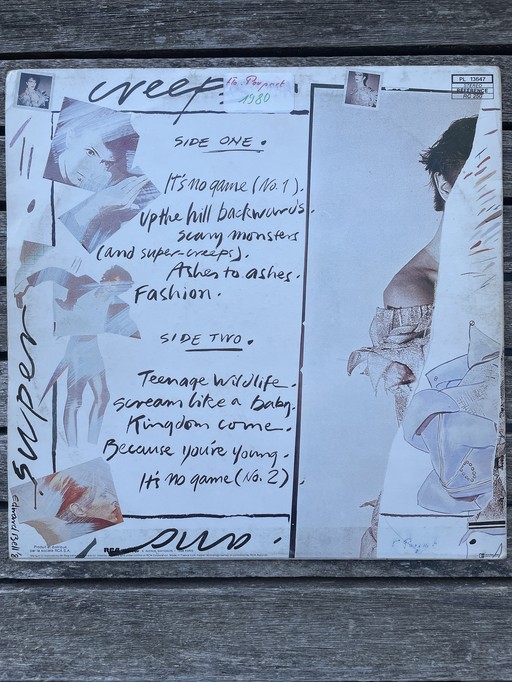 creep
1980
PL 13647
STEREO
SIDE ONE.
It's no game (No. 1).
Up the hill backwards.
scary monsters
(and super-creeps).
Ashes to ashes.
Fashion.
SIDE TWO.
Teenage Wildlife.
Scream like a baby.
Kingdom come.
Because you're young.
It's no game (No. 2)
super
RCA